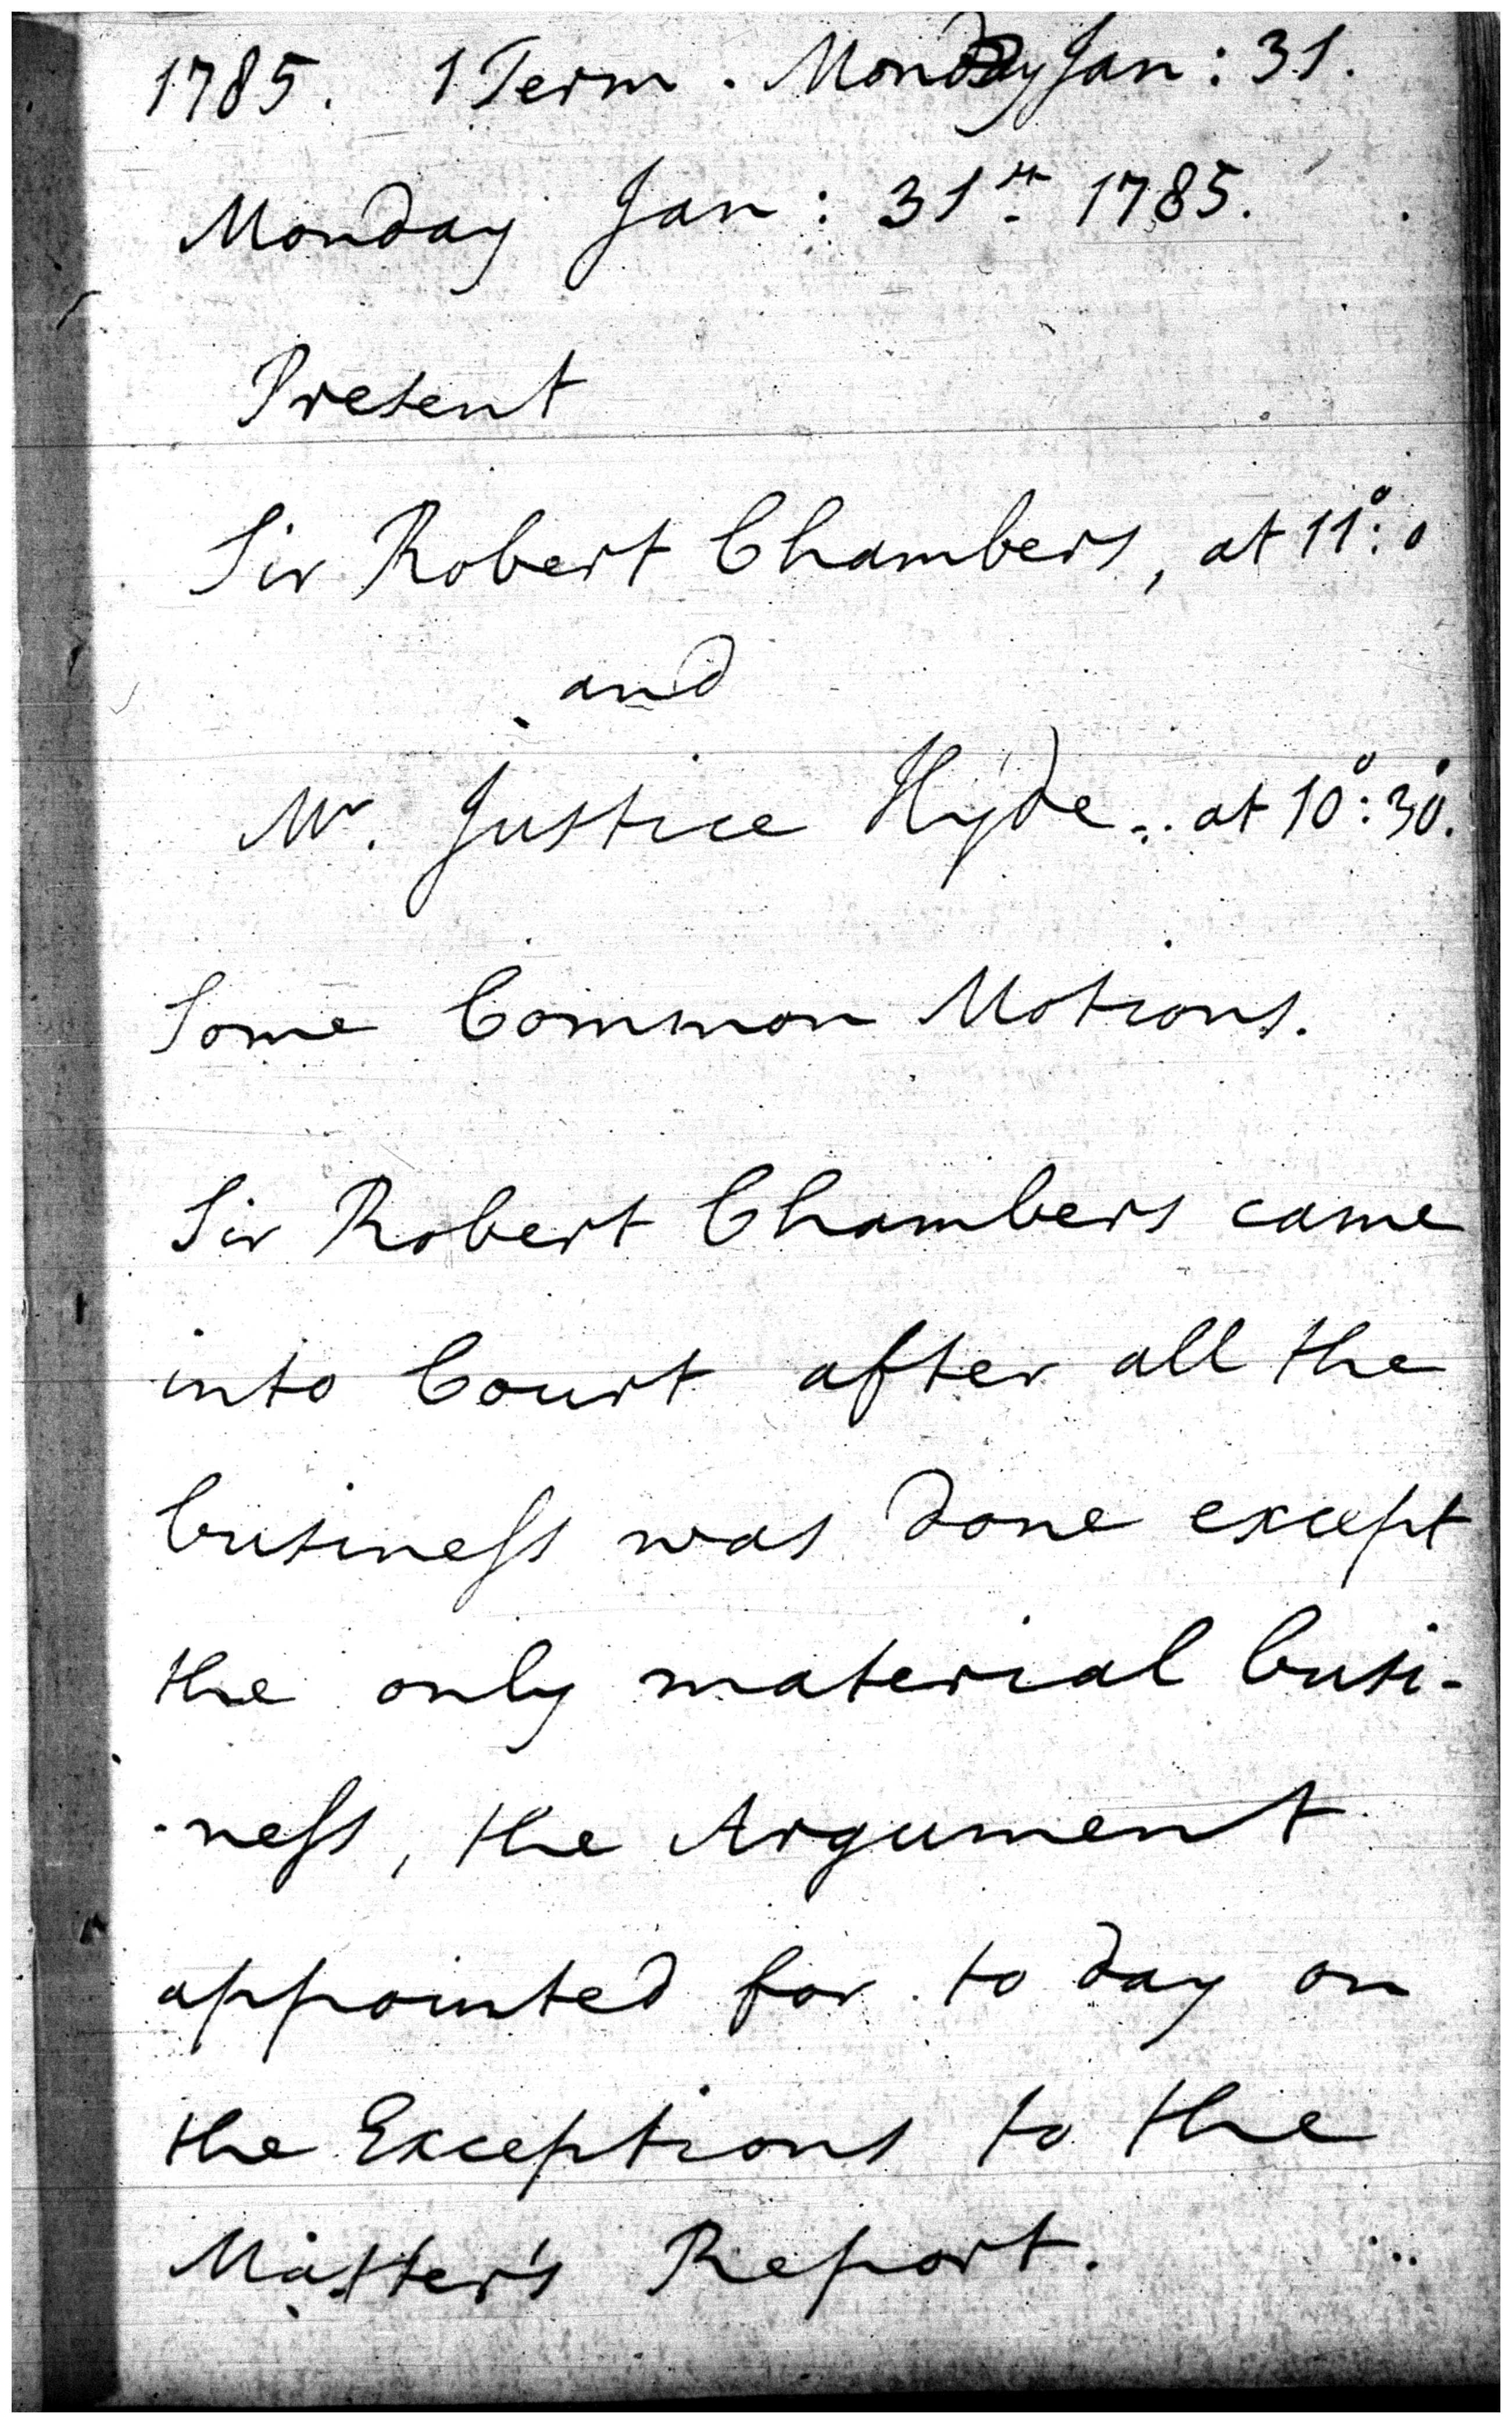 1785. 1 Term. Monday Jan: 31.
Monday Jan: 31st 1785.
Present
Sir Robert Chambers, at 11°: 0
and
Mr. Justice Hyde.. at 10°: 30'.
Some Common Motions.
Sir Robert Chambers came
into Court after all the
busineſs was done except
the only material busi-
-neſs, the Argument
appointed for to day on
the Exceptions to the
Master's Report.